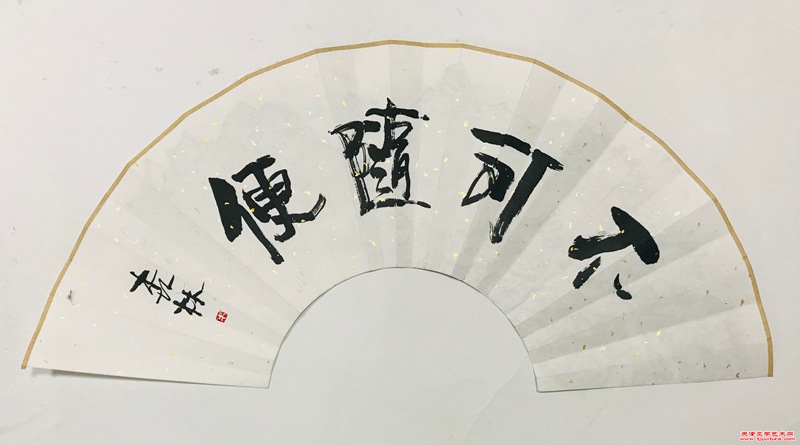 不可随便
林
天津文学艺术网
www.tjculture.com